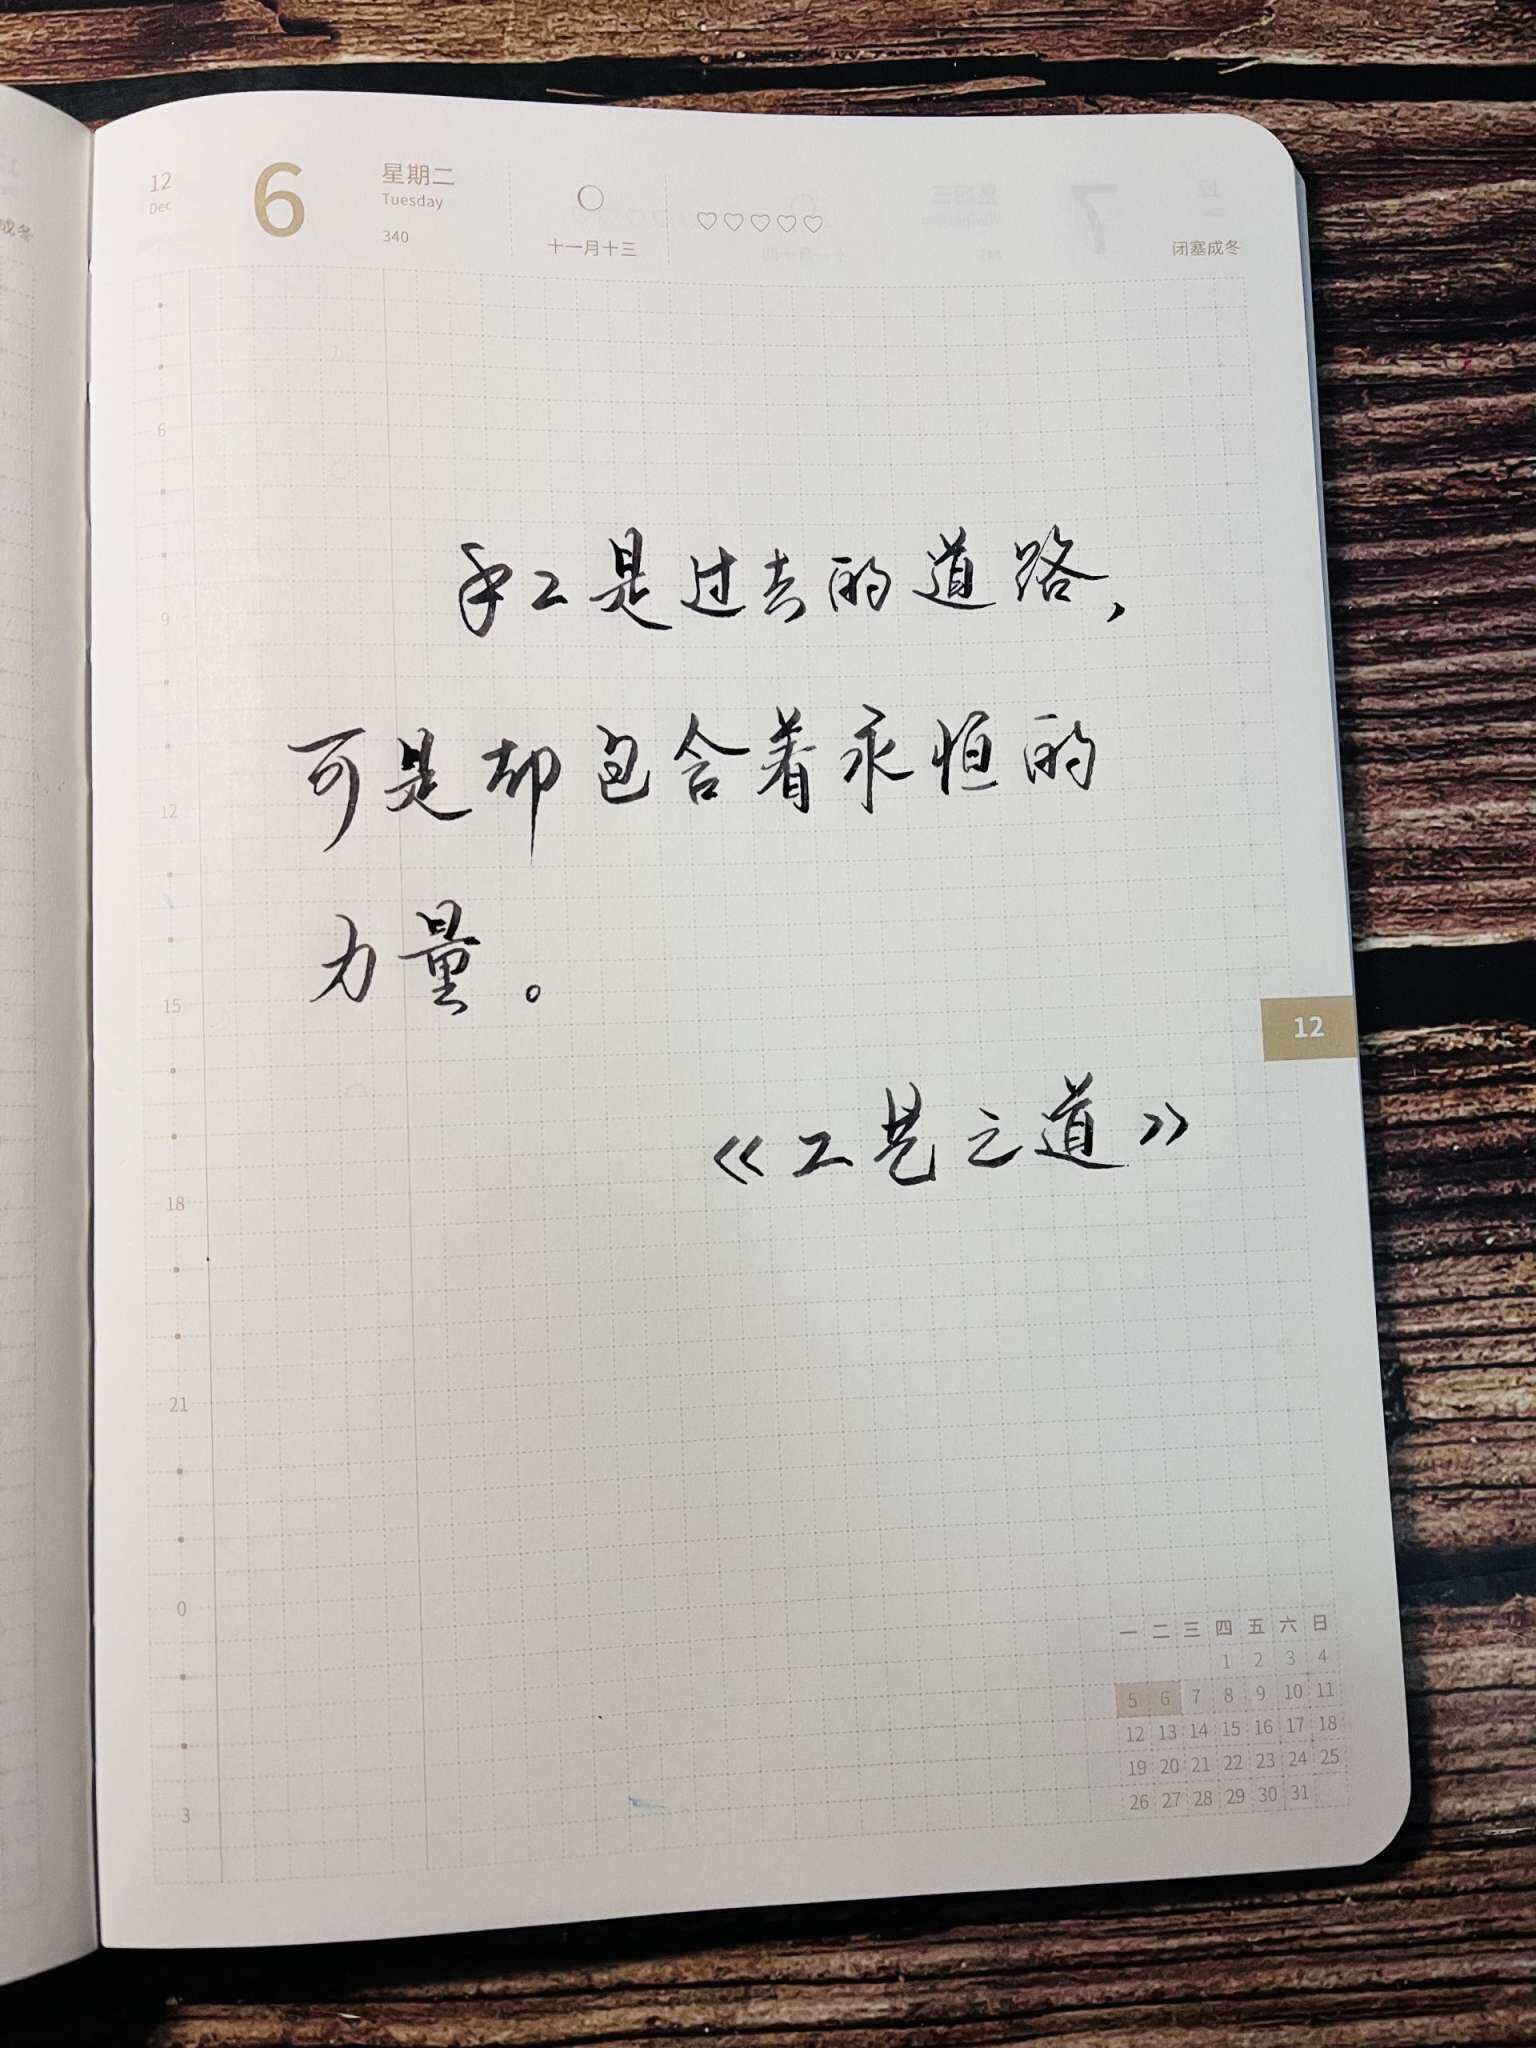 12
Dec
6
星期二
Tuesday
340
十一月十三
闭塞成冬
成冬
6
9
12
15
18
21
0
3
手工是过去的道路，
可是却包含着永恒的
力量。
《工艺之道》
12
一 二 三 四 五 六 日
1 2 3 4
5 6 7 8 9 10 11
12 13 14 15 16 17 18
19 20 21 22 23 24 25
26 27 28 29 30 31